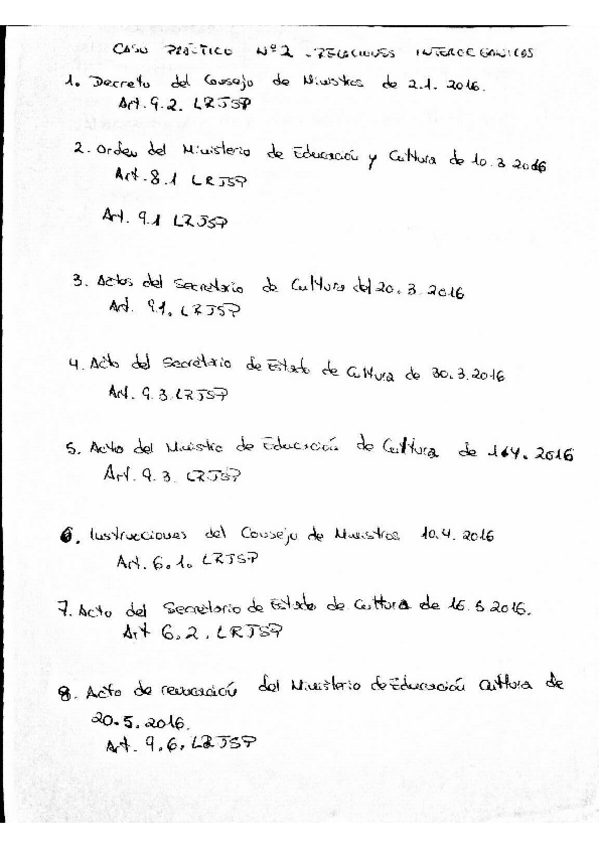 CASO PRÁCTICO Nº 2. RELACIONES INTERORGÁNICAS
1. Decreto del Consejo de Ministros de 2.1. 2016.
Art. 9.2. LRJSP
2. Orden del Ministerio de Educación y Cultura de 10.3 2016
Art. 8.1 LRJSP
Art. 9.1 LRJSP
3. Actos del Secretario de Cultura del 20.3.2016
Art. 9.1. LRJSP
4. Acto del Secretario de Estado de Cultura de 30.3.2016
Art. 9.3. LRJSP
5. Acto del Ministro de Educación de Cultura de 2016
Art. 9.3. LRJSP
6. Instrucciones del Consejo de Ministros 10.4.2016
Art. 6.1. LRJSP
7. Acto del Secretario de Estado de Cultura de 2016.
Art 6.2. LRJSP
8. Acto de revocación del Ministerio de Educación Cultura de
20.5.2016.
Art. 9.6. LRJSP